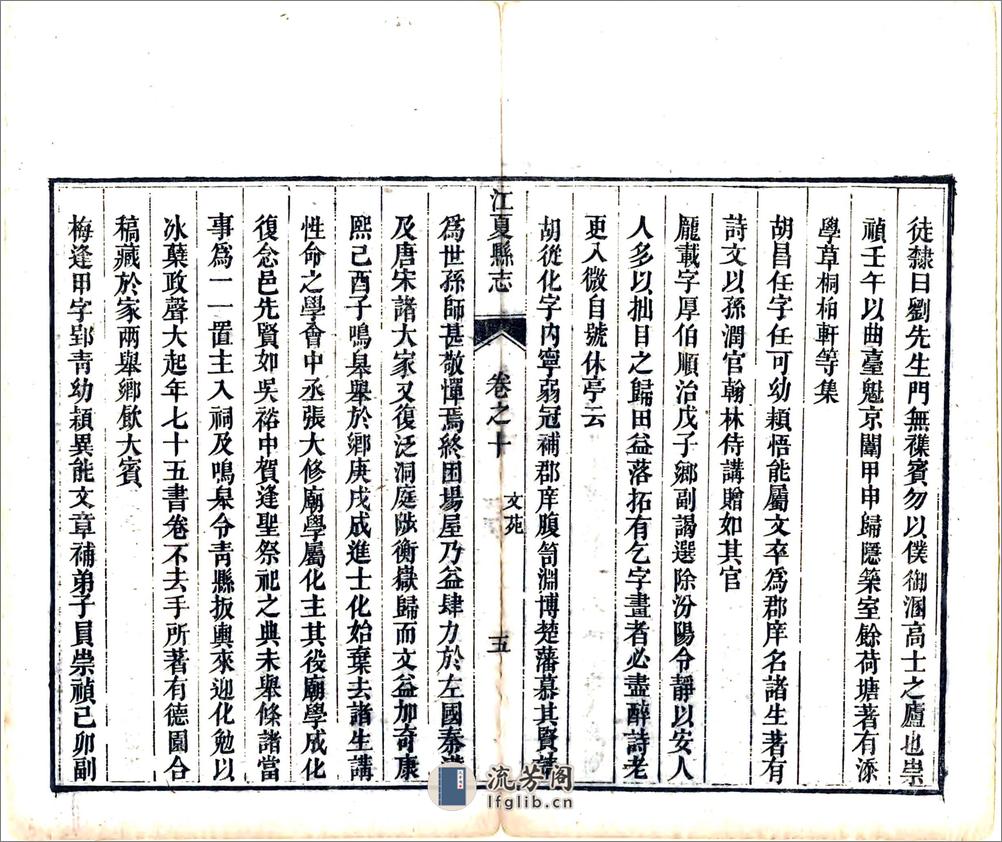 徒隸曰劉先生門無襍賓勿以僕御溷高士之廬也崇
禎壬午以曲臺魁京闈甲申歸隱築室餘荷塘著有添
學草桐柏軒等集
胡昌任字任可幼穎悟能屬文卒為郡庠名諸生著有
詩文以孫潤官翰林侍講贈如其官
龐載字厚伯順治戊子鄉副謁選除汾陽令靜以安人
人多以拙目之歸田益落拓有乞字畫者必盡醉詩老
更入微自號休亭云
胡從化字内寧弱冠補郡庠腹笥淵博楚藩慕其賢
江夏縣志
卷之十
文苑
五
為世孫師甚敬憚焉終困場屋乃益肆力於左國秦漢
及唐宋諸大家又復泛洞庭陟衡嶽歸而文益加奇康
熙己酉子鳴皋舉於鄉庚戌成進士化始棄去諸生講
性命之學會中丞張大修廟學屬化主其役廟學成化
復念邑先賢如吳裕中賀逢聖祭祀之典未舉條諸當
事為一一置主入祠及鳴皋令青縣扳輿來迎化勉以
冰蘗政聲大起年七十五書卷不去手所著有德園合
稿藏於家兩舉鄉飲大賓
梅逢甲字郢青幼穎異能文章補弟子員崇禎己卯副
流芳阁
lfglib.cn